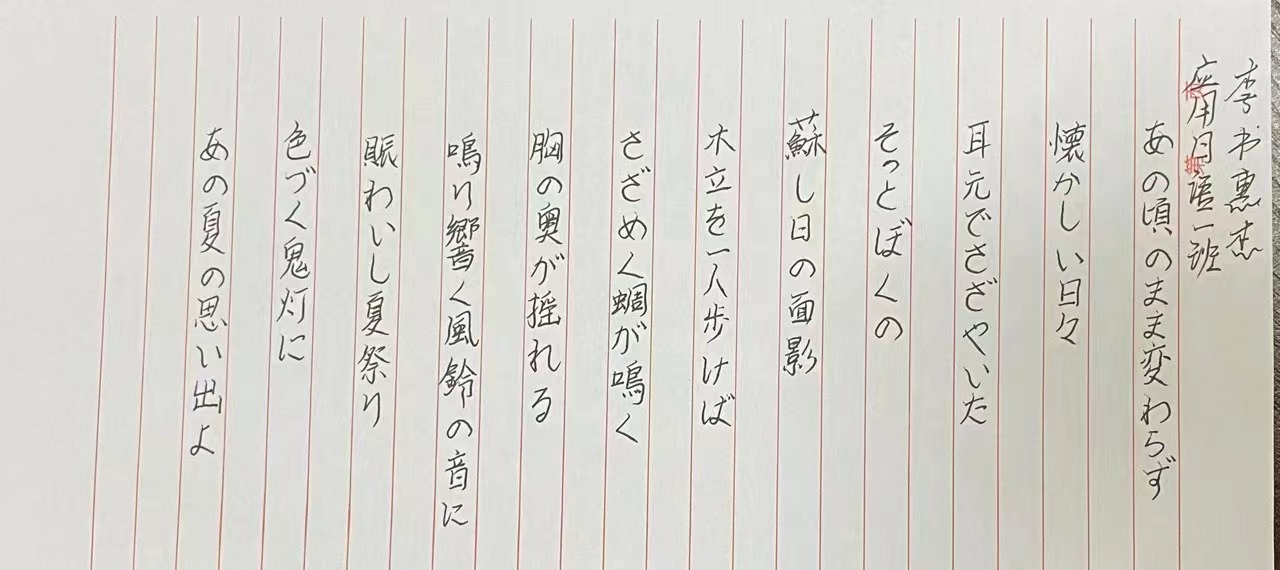 李书惠杰
应用日语一班
あの頃のまま変わらず
懐かしい日々
耳元でさざやいた
そっとぼくの
蘇し日の面影
木立を一人歩けば
さざめく蜩が鳴く
胸の奥が揺れる
鳴り響く風鈴の音に
賑わいし夏祭り
色づく鬼灯に
あの夏の思い出よ